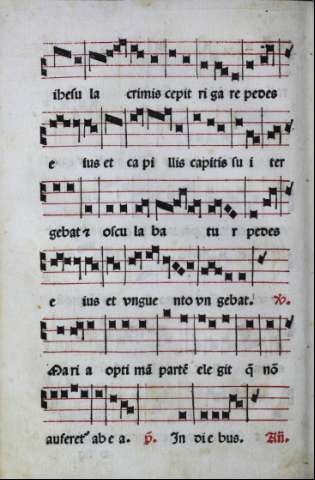 ihesu la crimis cepit ri ga re pedes
e ius et ca pi llis capitis su i ter
gebat ⁊ oscu la ba tu r pedes
e ius et vngue nto vn gebat. ℣.
Mari a opti mā partē ele git q̄ nō
auferet᷑ ab e a. p̄. In die bus. Añ.